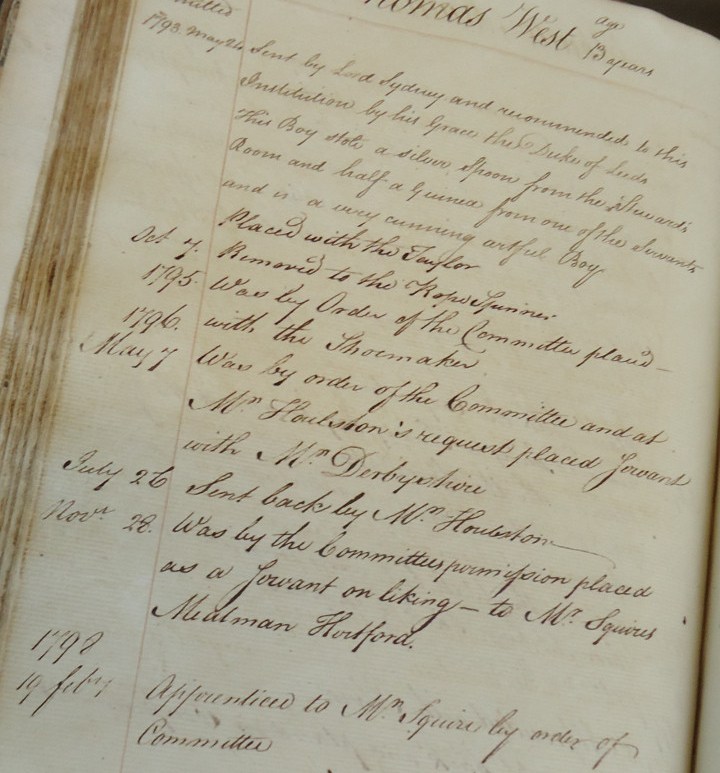 Thomas West age 13 years
mitted
1793. May 24 Sent by Lord Sydney and recommended to this
Institution by his Grace the Duke of Leeds
This Boy stole a silver spoon from the Stewards
Room and half a Guinea from one of the Servants
and is a very cunning artful Boy
Placed with the Taylor
Oct 7. Removed to the Rope Spinner
1795. Was by Order of the Committee placed
1796. with the Shoemaker
May 7 Was by order of the Committee and at
Mr Houlston's request placed Servant
with Mr Derbyshire
July 26 Sent back by Mr Houlston
Novr 28. Was by the Committees permission placed
as a Servant on liking - to Mr Squires
Mealman Hertford.
1798
19 feby Apprenticed to Mr Squire by order of
Committee